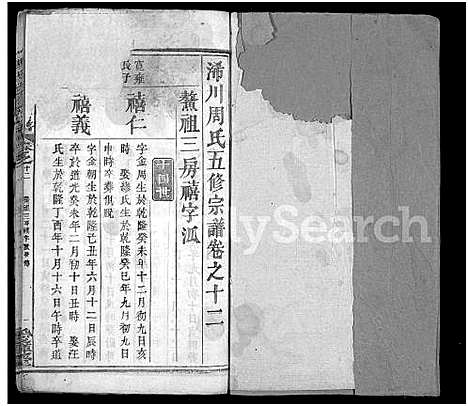 浠川周氏五修宗譜卷之十二
鰲祖三房禧字派
十四世
寬雍
長子
禧仁
字金周生於乾隆癸未年十二月初九日亥
時 娶繆氏生於乾隆癸巳年九月初九日
申時卒葬俱冩
禧義
字金朝生於乾隆己丑年六月十二日辰時
卒於道光癸未年二月初十日丑時 娶汪
氏生於乾隆丁酉年十月十六日午時卒道